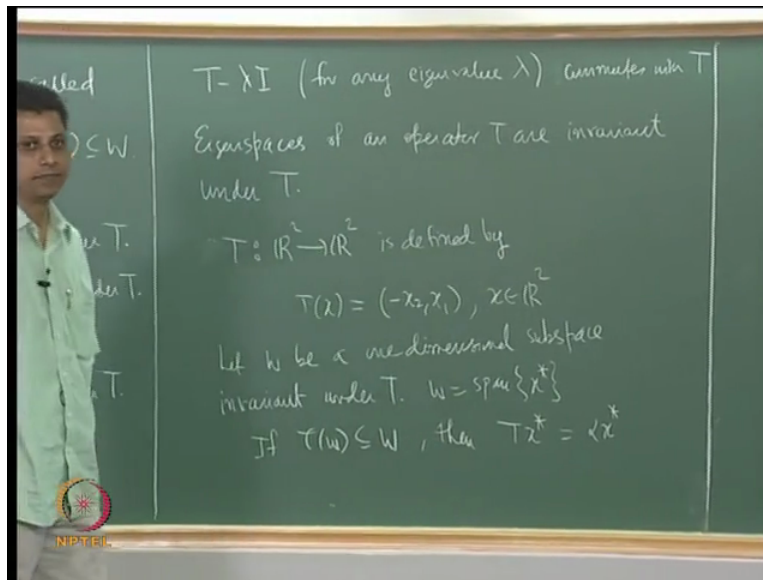 called
) ⊆ W.
er T.
der T.
T.
T - λI (for any eigenvalue λ) commutes with T
Eigenspaces of an operator T are invariant
under T.
T : ℝ² → ℝ² is defined by
T(x) = (-x₂, x₁), x ∈ ℝ²
Let W be a one dimensional subspace
invariant under T. W = span{x*}
If T(W) ⊆ W, then Tx* = αx*
NPTEL